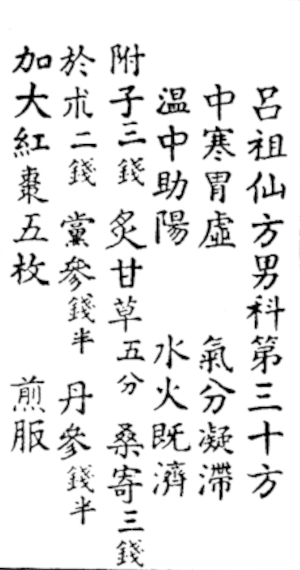 呂祖仙方男科第三十方
中寒胃虛 氣分凝滯
溫中助陽 水火既濟
附子三錢 炙甘草五分 桑寄三錢
於朮二錢 黨參錢半 丹參錢半
加大紅棗五枚 煎服